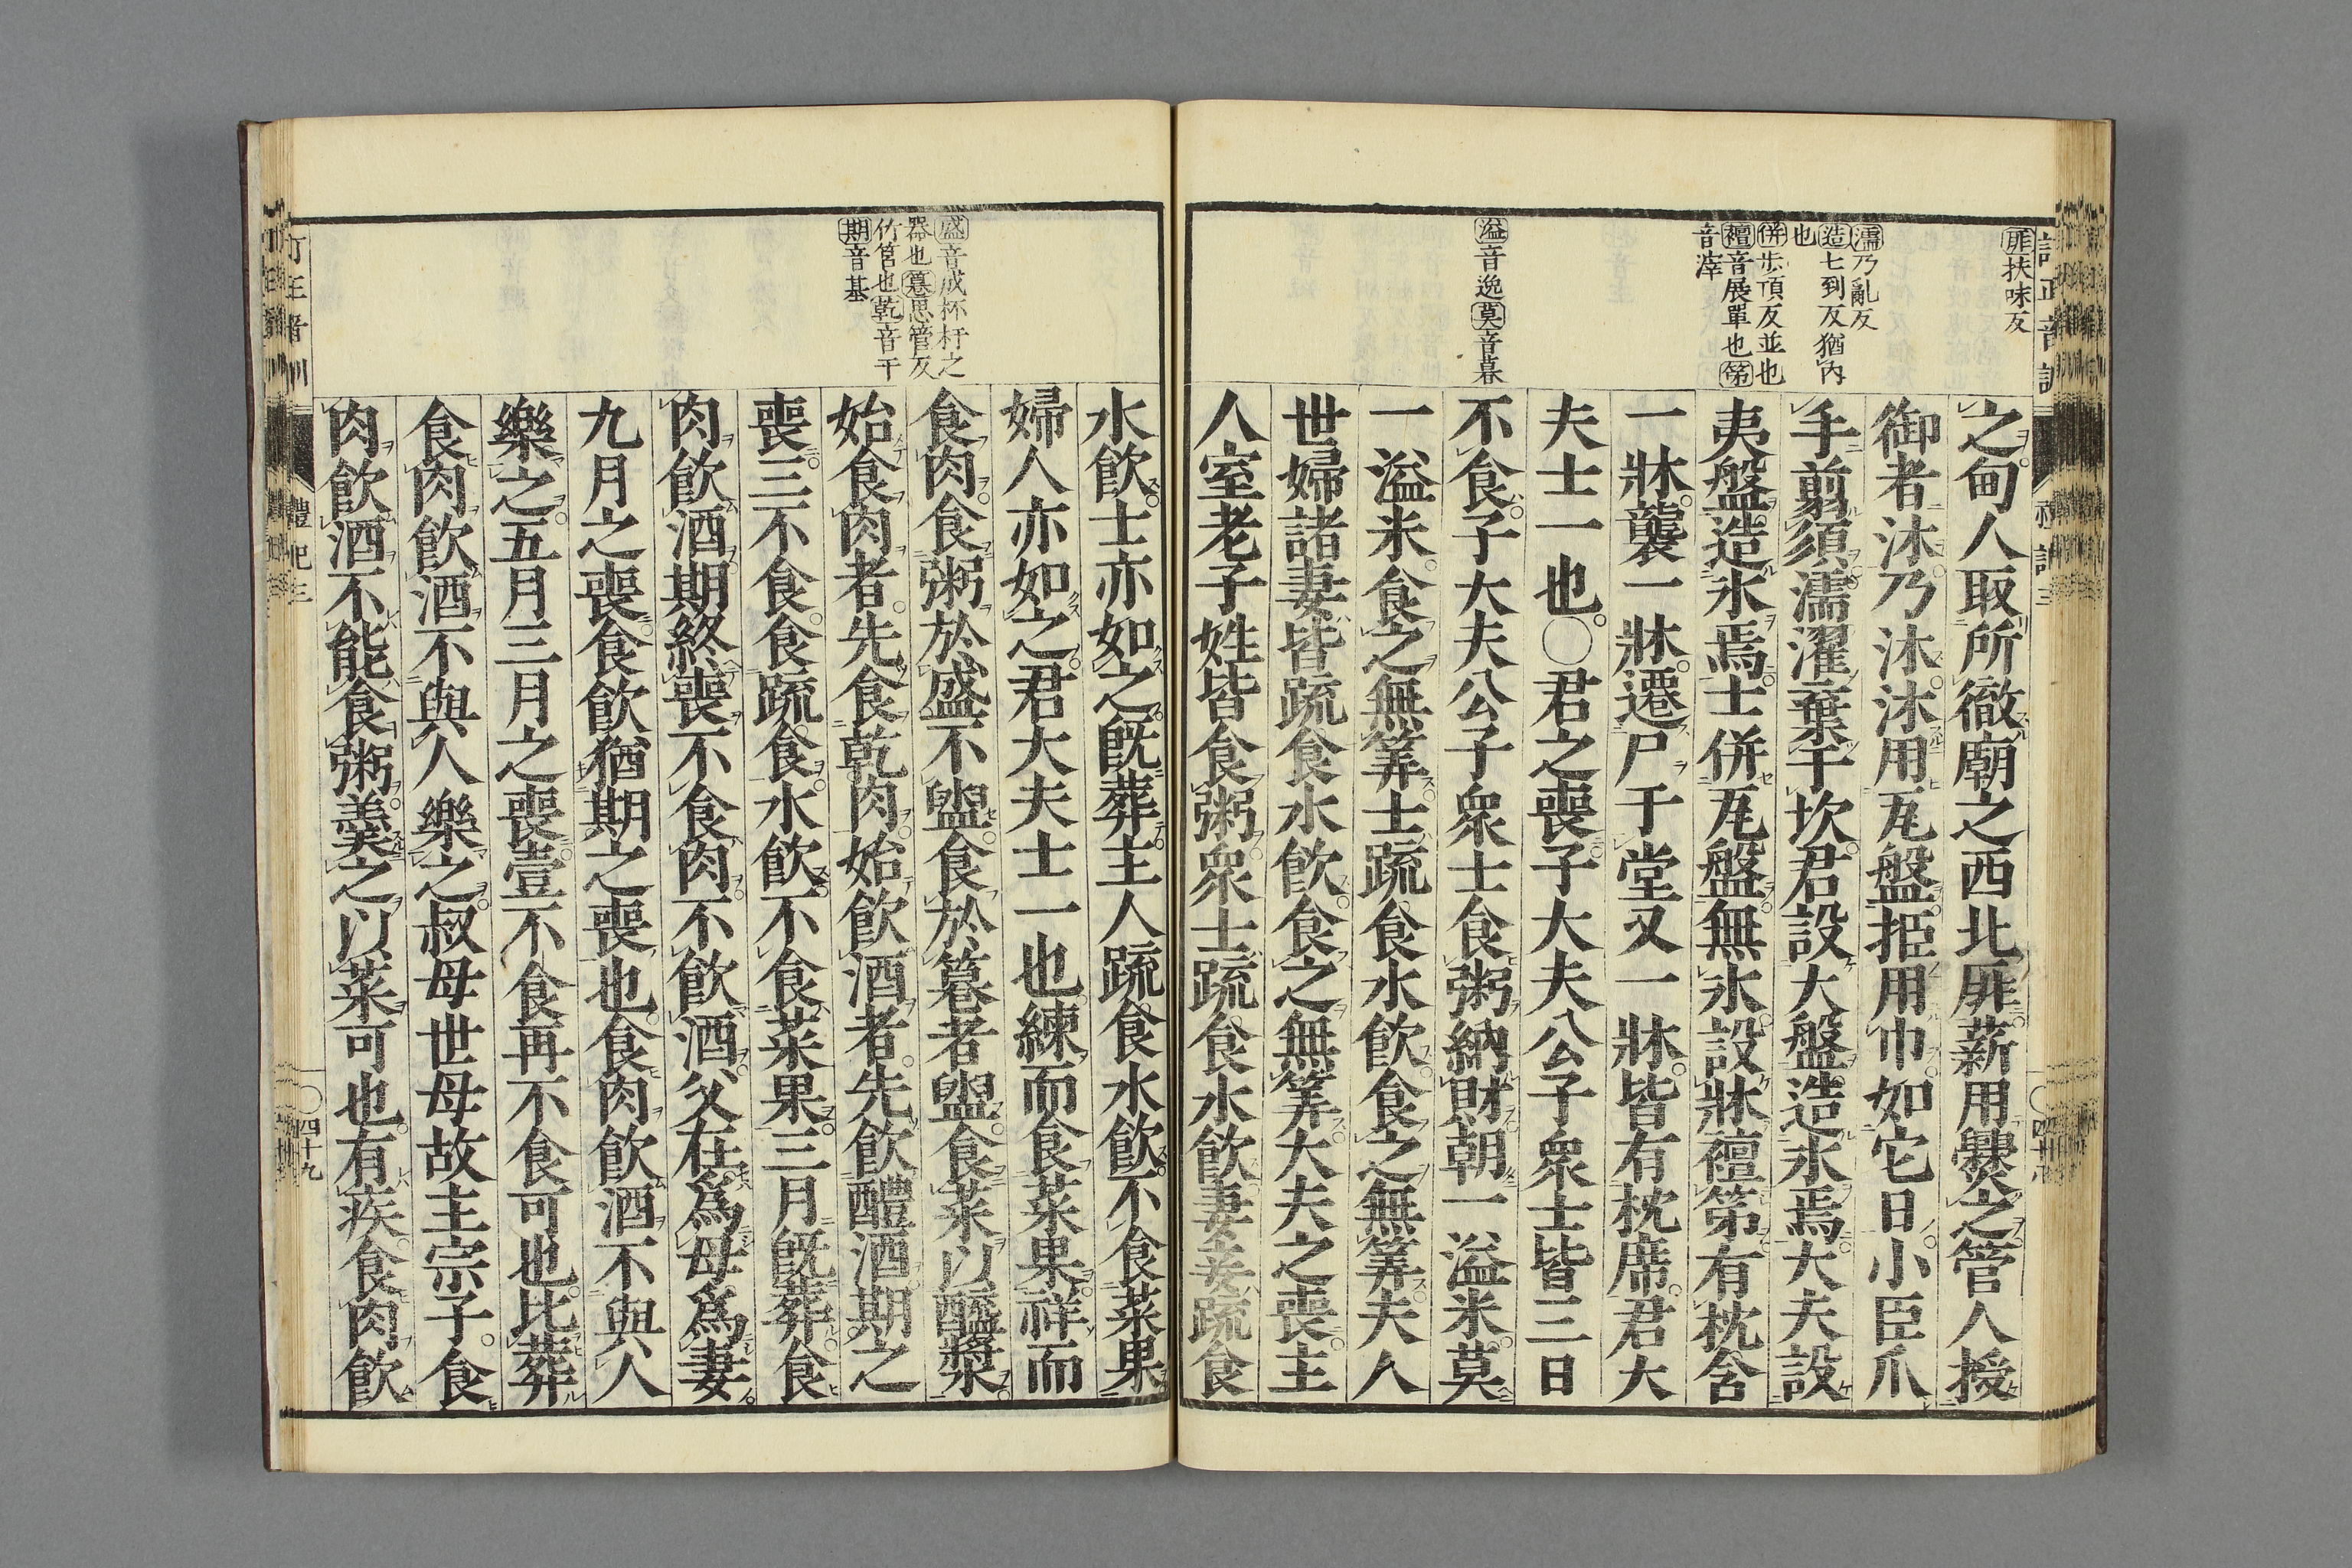 厞扶味反
濡乃亂反
造七到反猶內
也
併步頂反並也
襢音展單也笫
音滓
溢音逸莫音暮
之甸人取所徹廟之西北厞薪用爨之管人授
御者沐乃沐沐用瓦盤挋用巾如它日小臣爪
手翦須濡濯棄于坎君設大盤造氷焉大夫設
夷盤造氷焉士併瓦盤無氷設牀襢笫有枕含
一牀襲一牀遷尸于堂又一牀皆有枕席君大
夫士一也〇君之喪子大夫公子衆士皆三日
不食子大夫公子衆士食粥納財朝一溢米莫
一溢米食之無筭士疏食水飲食之無筭夫人
世婦諸妻皆疏食水飲食之無筭大夫之喪主
人室老子姓皆食粥衆士疏食水飲妻妾疏食
盛音成杯杅之
器也篹思管反
竹筥也乾音干
期音基
水飲士亦如之既葬主人疏食水飲不食菜果
婦人亦如之君大夫士一也練而食菜果祥而
食肉食粥於盛不盥食於篹者盥食菜以醯漿
始食肉者先食乾肉始飲酒者先飲醴酒期之
喪三不食食疏食水飲不食菜果三月既葬食
肉飲酒期終喪不食肉不飲酒父在爲母爲妻
九月之喪食飲猶期之喪也食肉飲酒不與人
樂之五月三月之喪壹不食再不食可也比葬
食肉飲酒不與人樂之叔母世母故主宗子食
肉飲酒不能食粥羹之以菜可也有疾食肉飲
禮記三
〇四十九